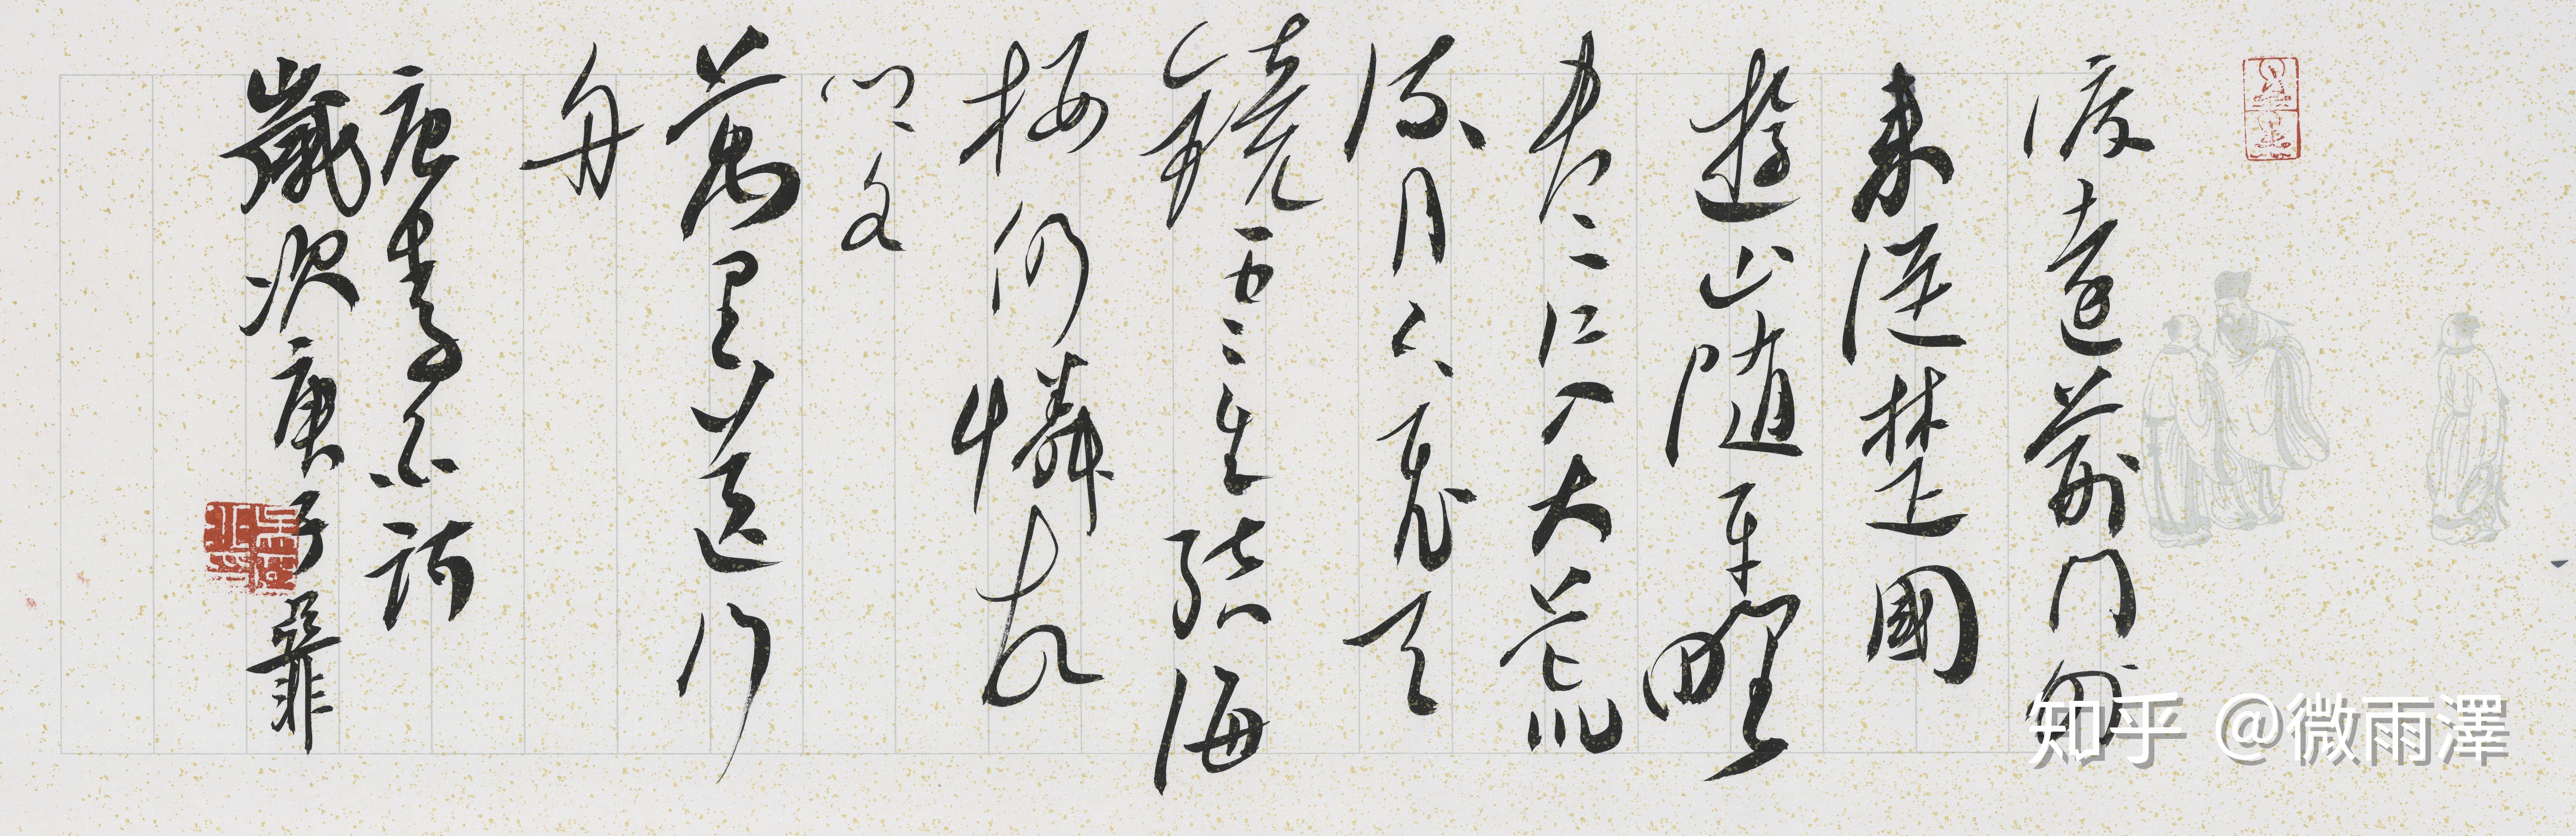 渡遠荊門外
来從楚國
遊山随平野
尽江入大荒
流月下飛天
鏡雲生结海
楼仍憐故
乡水
萬里送行
舟
唐李白詩
歲次庚子
知乎 @微雨澤